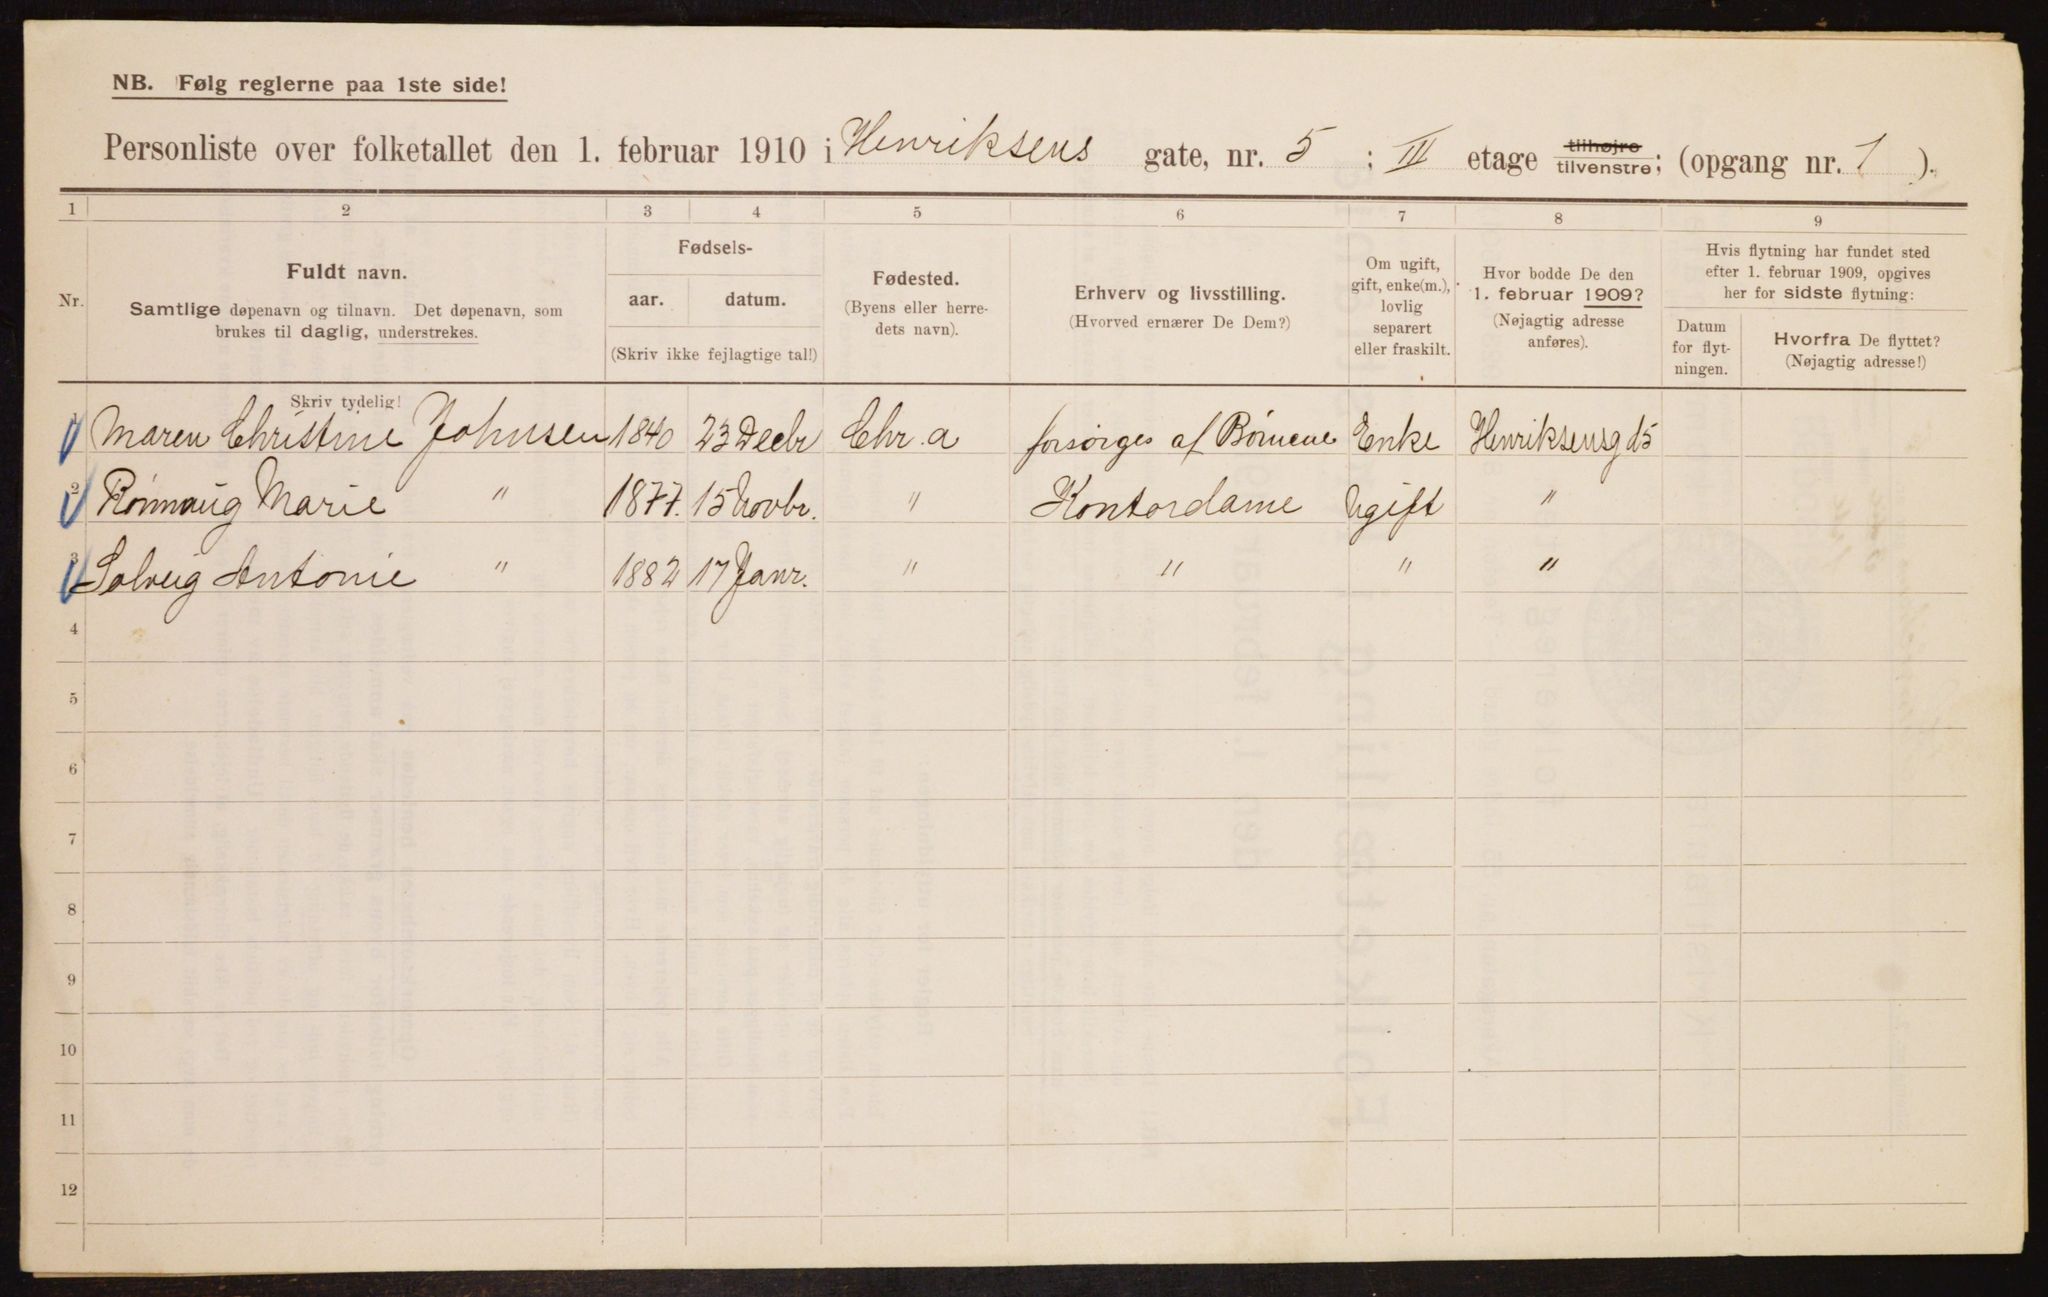 NB. Følg reglerne paa 1ste side!
Personliste over folketallet den 1. februar 1910 i Henriksens gate, nr. 5 ; III etage tilhøjre tilvenstre; (opgang nr. 1 ).
1 2 3 4 5 6 7 8 9
Nr.
Fuldt navn.
Samtlige døpenavn og tilnavn. Det døpenavn, som
brukes til daglig, understrekes.
Skriv tydelig!
Fødsels-
aar. datum.
(Skriv ikke fejlagtige tal!)
Fødested.
(Byens eller herre-
dets navn).
Erhverv og livsstilling.
(Hvorved ernærer De Dem?)
Om ugift,
gift, enke(m.),
lovlig
separert
eller fraskilt.
Hvor bodde De den
1. februar 1909?
(Nøjagtig adresse
anføres).
Hvis flytning har fundet sted
efter 1. februar 1909, opgives
her for sidste flytning:
Datum
for flyt-
ningen.
Hvorfra De flyttet?
(Nøjagtig adresse!)
1 Maren Christine Johnsen 1840 23 Decbr Chr.a forsørges af Børnene Enke Henriksensgd 5
2 Rønnaug Marie " 1877. 15 Novbr. " Kontordame Ugift "
3 Solveig Antonie " 1882 17 Janr. " " " "
4
5
6
7
8
9
10
11
12